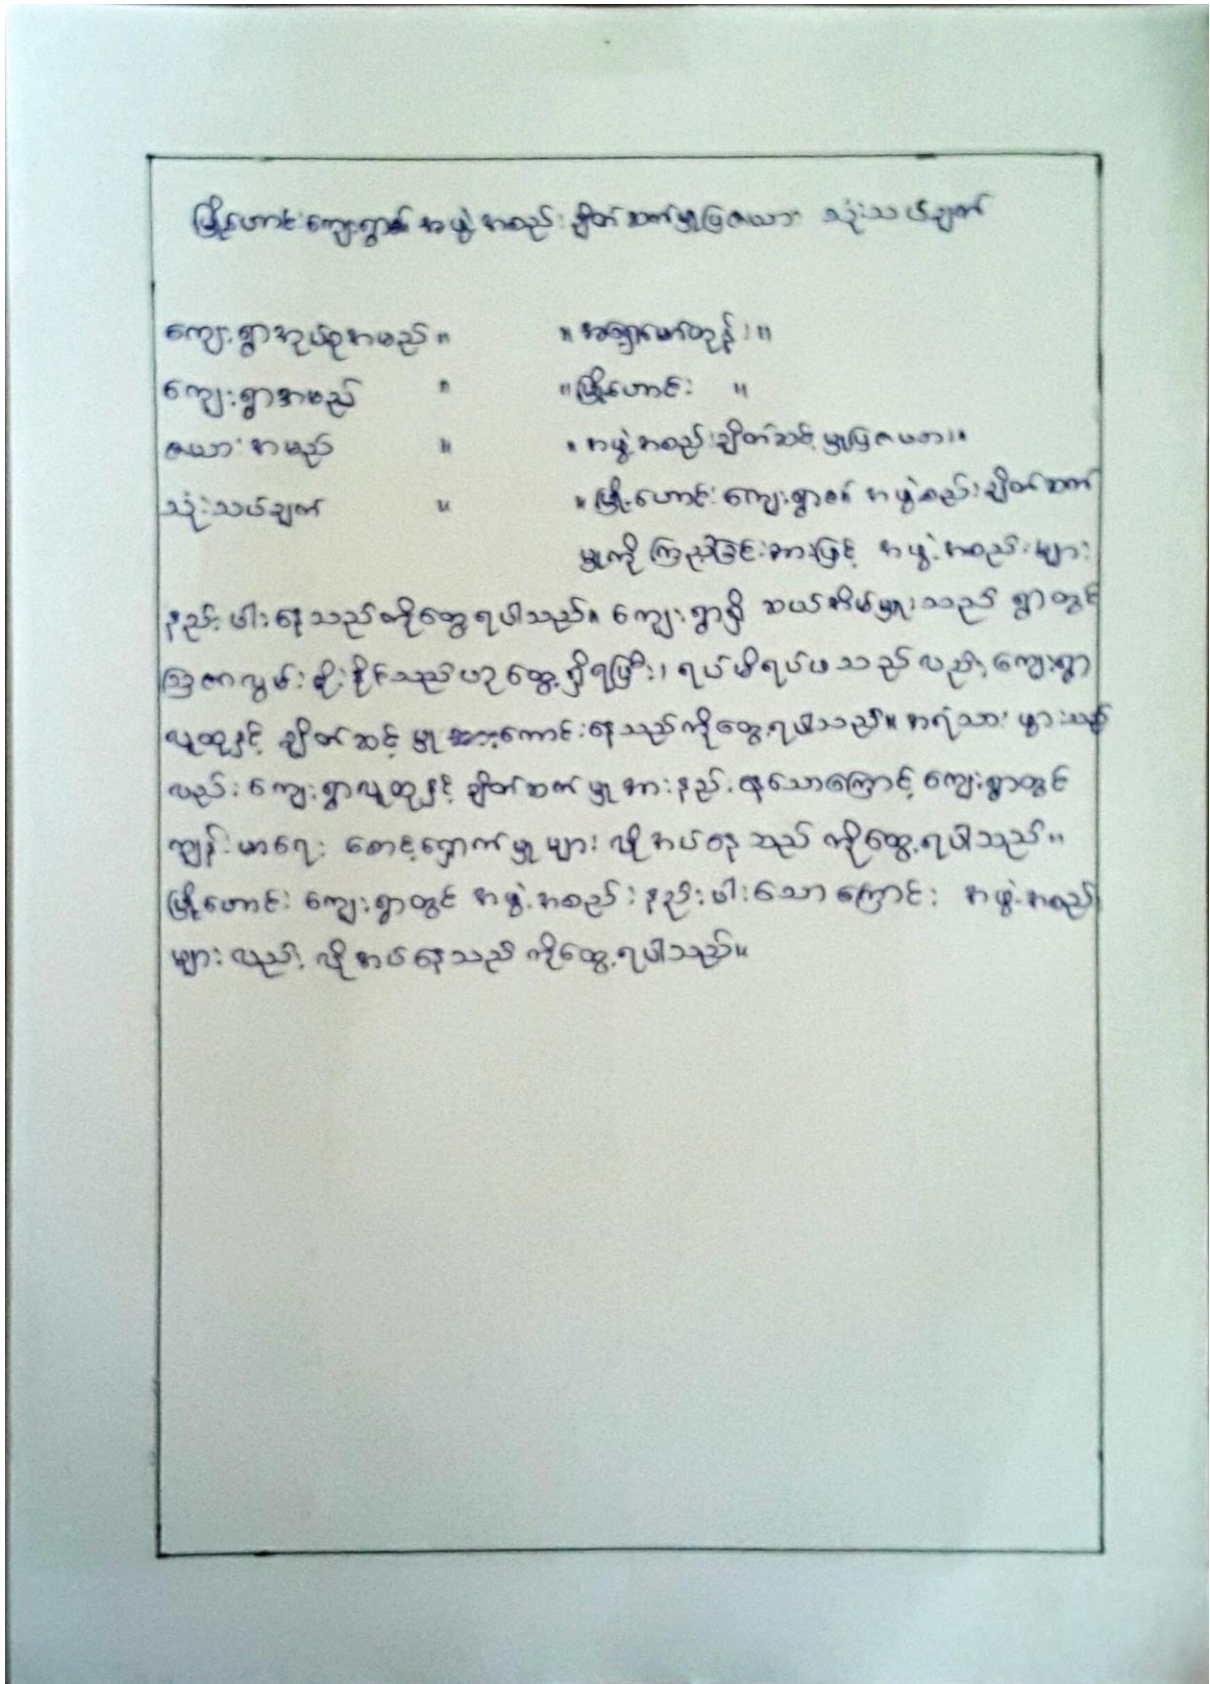 မြို့ဟောင်းကျေးရွာ၏ အဖွဲ့အစည်း ချိတ်ဆက်မှုပြဇယား သုံးသပ်ချက်
ကျေးရွာအုပ်စုအမည် ။ ။
ကျေးရွာအမည် ။ ။ မြို့ဟောင်း ။
ဇယားအမည် ။ ။ အဖွဲ့အစည်းချိတ်ဆင့်မှုပြဇယား။
သုံးသပ်ချက် ။ ။ မြို့ဟောင်းကျေးရွာ၏ အဖွဲ့စည်းချိတ်ဆက်
မှုကိုကြည့်ခြင်းအားဖြင့် အဖွဲ့အစည်းများ
နည်းပါးနေသည်ကိုတွေ့ရပါသည်။ ကျေးရွာရှိ ဆယ်အိမ်မှူးသည် ရွာတွင်
ဩဇာလွှမ်းမိုးနိုင်သည်ဟု တွေ့ရှိရပြီး၊ ရပ်မိရပ်ဖသည်လည်း ကျေးရွာ
လူထုနှင့် ချိတ်ဆင့်မှု ကောင်းနေသည်ကိုတွေ့ရပါသည်။ အရံသားဖွားသည်
လည်း ကျေးရွာလူထုနှင့် ချိတ်ဆက်မှုအားနည်းနေသောကြောင့် ကျေးရွာတွင်
ကျန်းမာရေး စောင့်ရှောက်မှုများ လိုအပ်နေသည်ကိုတွေ့ရပါသည်။
မြို့ဟောင်းကျေးရွာတွင် အဖွဲ့အစည်းနည်းပါးသောကြောင်း အဖွဲ့အစည်း
များလည်း လိုအပ်နေသည်ကိုတွေ့ရပါသည်။